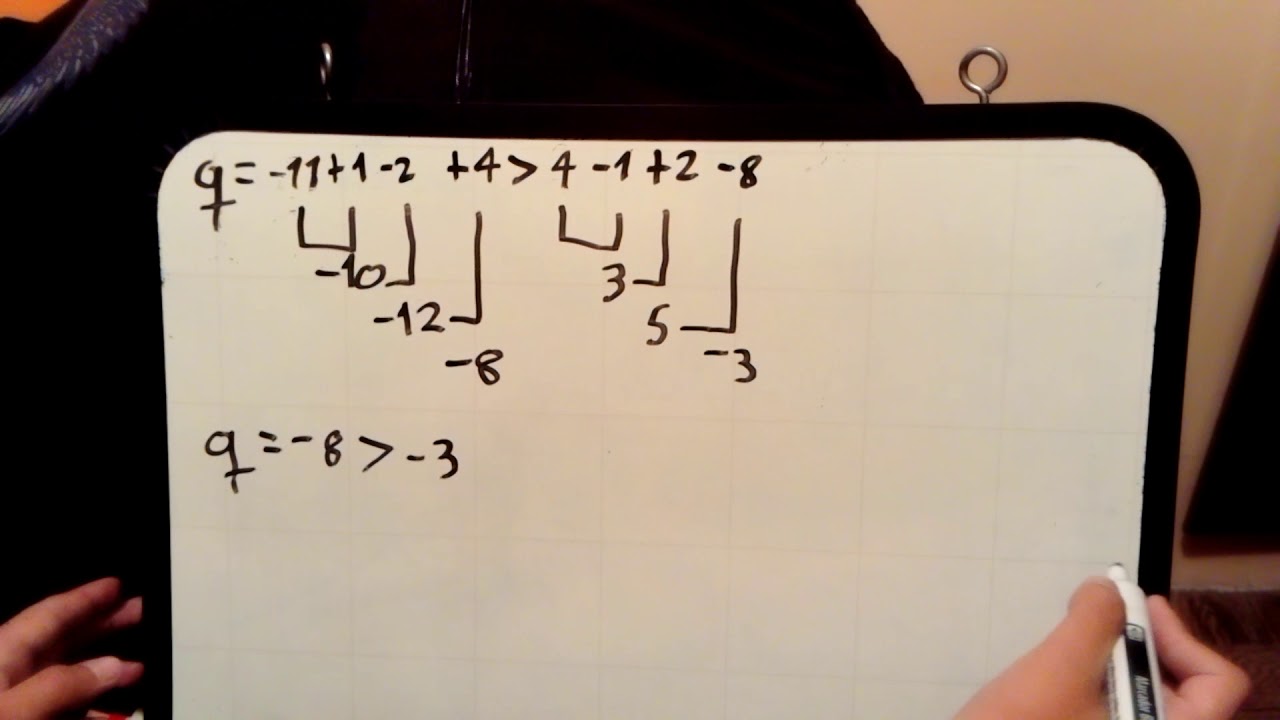 q = -11 + 1 - 2 + 4 > 4 - 1 + 2 - 8
-10 3
-12 5
-8 -3
q = -8 > -3
Marcador